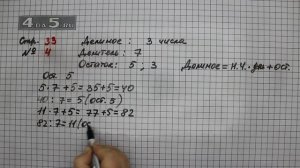 4DS.NET
Стр. 33 Делимое: 3 числа
№ 4 Делитель: 7
Остаток: 5; 3
Делимое = Н.Ч. · + ост.
Ост. 5
5 · 7 + 5 = 35 + 5 = 40
40 : 7 = 5 (ост. 5)
11 · 7 + 5 = 77 + 5 = 82
82 : 7 = 11 (ос